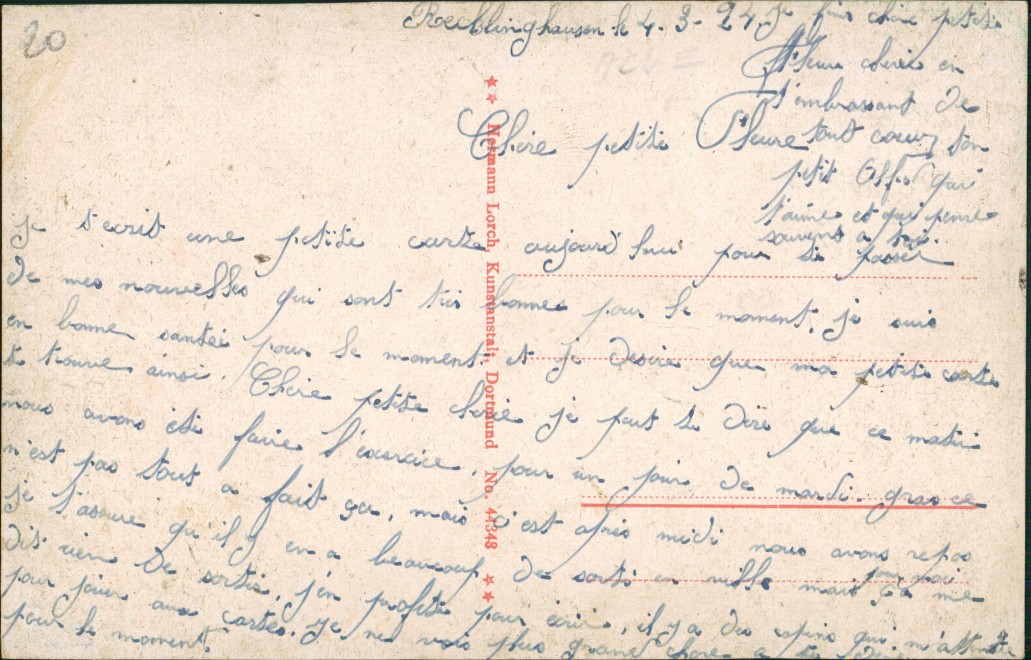 20
Recklinghausen le 4-3-24
Chère petite Fleure
je t'ecrit une petite carte aujourd'hui pour te passer
de mes nouvelles qui sont tris bonnes pour le moment, je suis
en bonne santée pour le moment et je desire que ma petite carte
te trouve ainsi. Chère petite cherie je peut te dire que ce matin
nous avons été faire l'exercice, pour un jour de mardi-gras ce
n'est pas tout a fait ça, mais c'est après midi nous avons repos
je t'assure qu'il y en a beaucoup de sorti en ville mais ça me
dit rien de sortir, j'en profite pour écrire, il y a des copins qui m'attende
pour moi
pour jouer aux cartes. Je ne vois plus grand chose a te dire
pour le moment
je finis chère petite
Fleure cherie en
t'embrassant de
tout cœur, ton
petit qui
t'aime et qui pense
souvent a toi.
Hermann Lorch, Kunstanstalt, Dortmund No. 44348